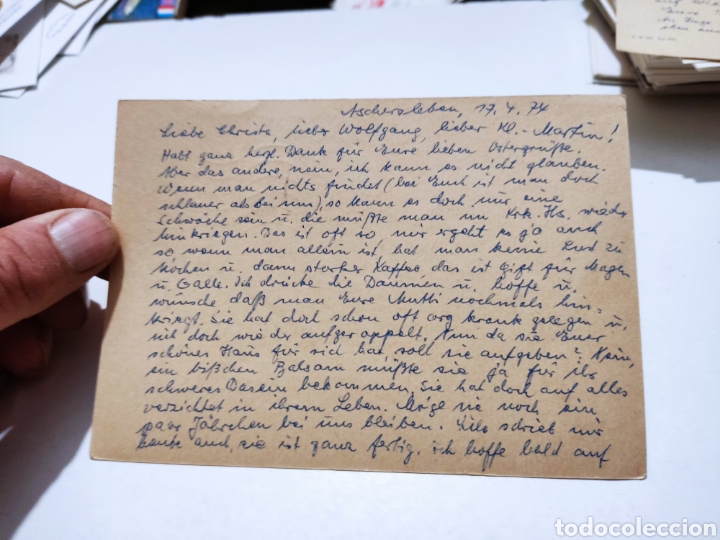 Aschersleben, 17.4.74
Liebe Christa, lieber Wolfgang, lieber Kl.-Martin!
Habt ganz herzl. Dank für Eure lieben Ostergrüße.
Aber das andere, nein, ich kann es nicht glauben.
Wenn man nichts findet (bei Euch ist man doch
schlauer als bei uns), so kann es doch nur eine
Schwäche sein u. die müßte man im Krk. Hs. wieder
hinkriegen. Das ist oft so mir ergeht es ja auch
so, wenn man allein ist hat man keine Lust zu
kochen u. dann starker Kaffee, das ist Gift für Magen
u. Galle. Ich drücke die Daumen u. hoffe u.
wünsche daß man Eure Mutti nochmals hin-
kriegt. Sie hat doch schon oft arg krank gelegen u.
sich doch wieder aufgerappelt. Nun da sie Euer
schönes Haus für sich hat, soll sie aufgeben? Nein,
ein bißchen Balsam müßte sie ja für ihr
schweres Dasein bekommen. Sie hat doch auf alles
verzichtet in ihrem Leben. Möge sie noch ein
paar Jährchen bei uns bleiben. schrieb mir
heute auch, sie ist ganz fertig. ich hoffe bald auf
todocoleccion